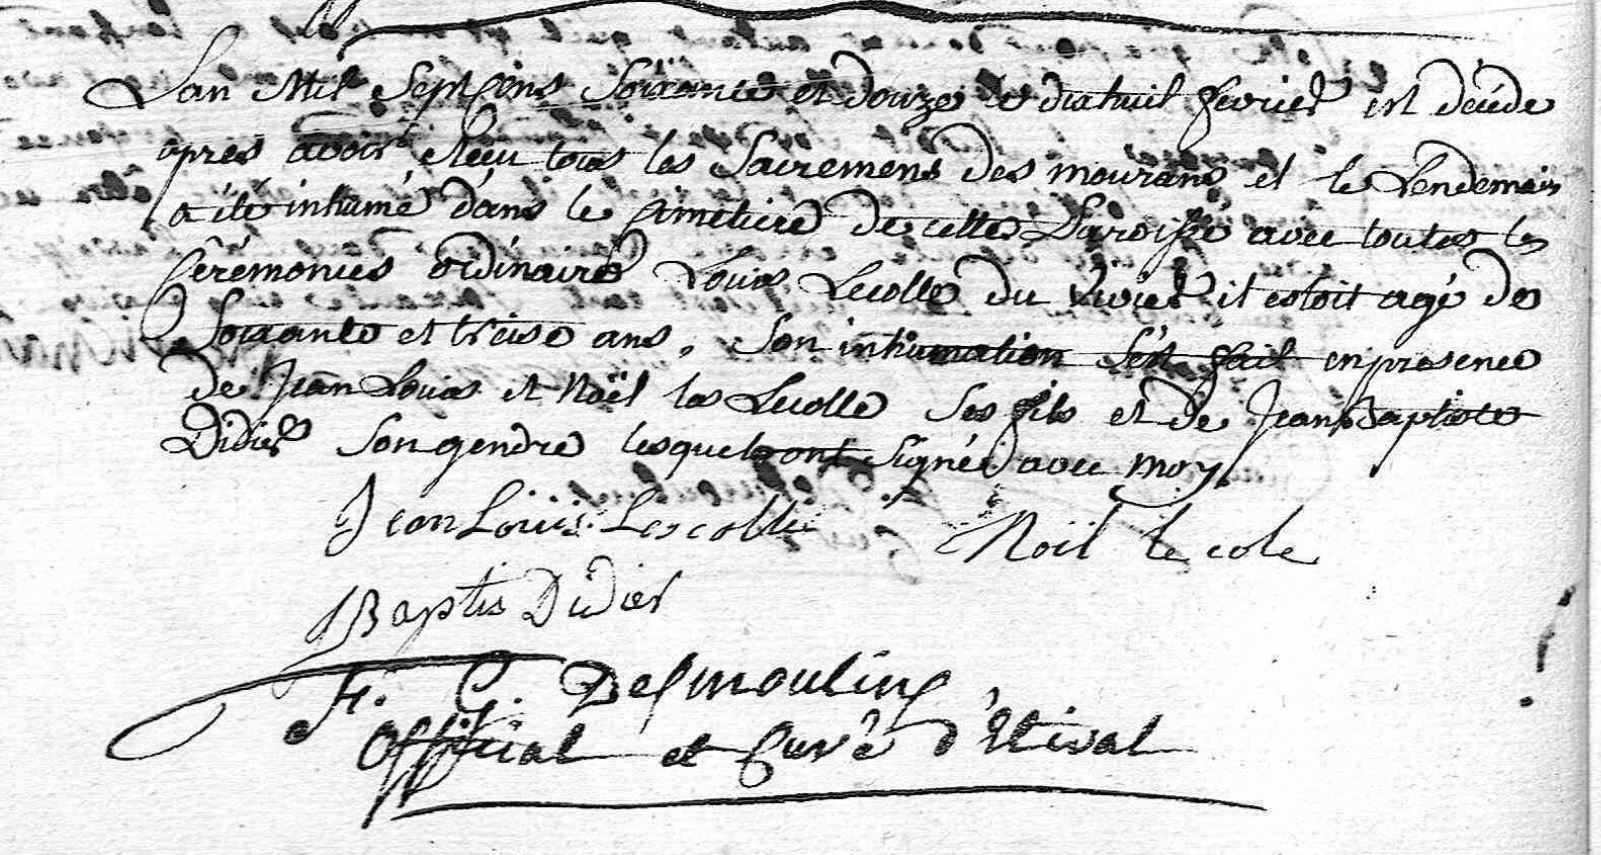 Lan Mil Sept Cens Soixante et douze le dixhuit fevrier est décédé
après avoir Reçu tous les Sacremens des mourans et le Lendemain
a été inhumé dans le Cimetiere de cette Paroisse avec toutes les
Cérémonies ordinaires Louis Lecolle du Vivier il estoit agé de
Soixante et treise ans, Son inhumation s'est fait en presence
de Jean Louis et Noël les Lecolle Ses fils et de Jean Baptiste
Didier Son gendre lesquels ont Signés avec moy
Jean Louis Lescolle Noïl le cole
JBaptis Didier
F. C. Desmoulins,
Official et Curé d'Etival